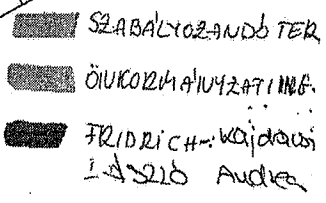 SZABÁLYOZANDÓ TER
ÖNKORMÁNYZATI ING.
FRIDRICH - Kajdacsi
LÁSZLÓ Andrea